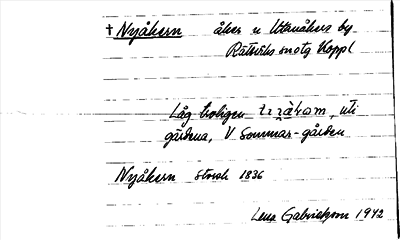 † Nyåkern åker n Utanåkers by
Rättviks sn o tg Koppl
Låg troligen uti
gärdena, V Sommar-gården
Nyåkern storsk 1836
Lena Gabrielsson 1942